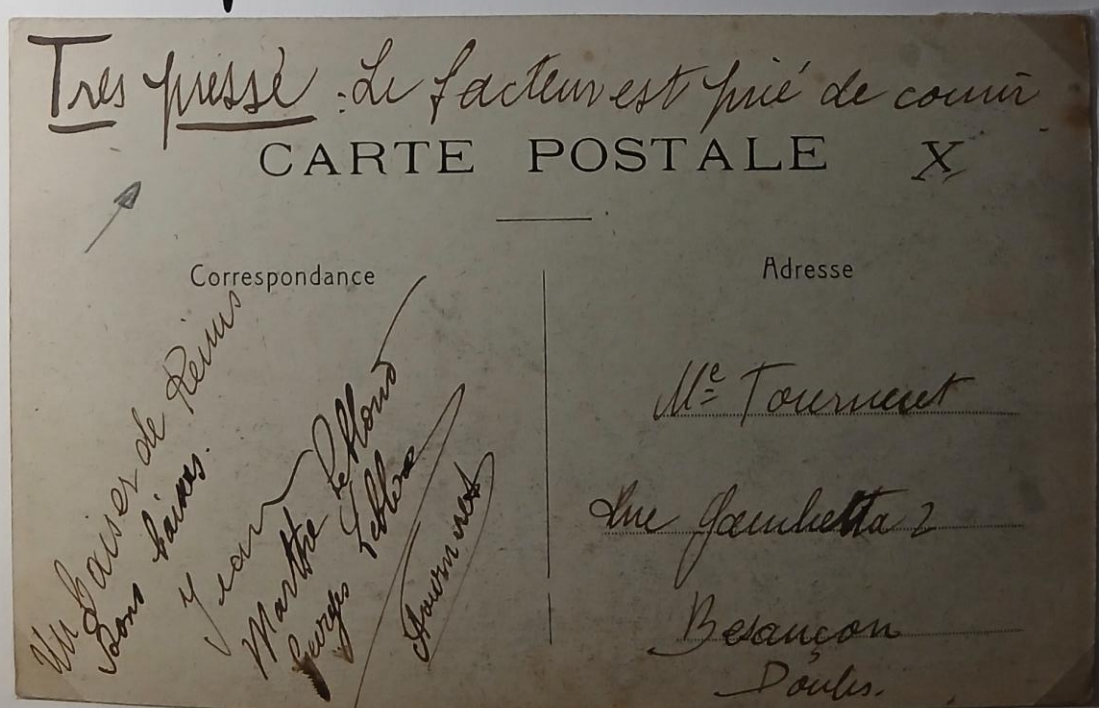 Tres pressé : Le facteur est prié de courir
CARTE POSTALE X
Correspondance
Un baiser de Reims
Bons baisers.
Jean
Marthe Leblond
Georges Leblond
Tourneret
Adresse
Me Tourneret
Rue Gambetta 2
Besançon
Doubs.